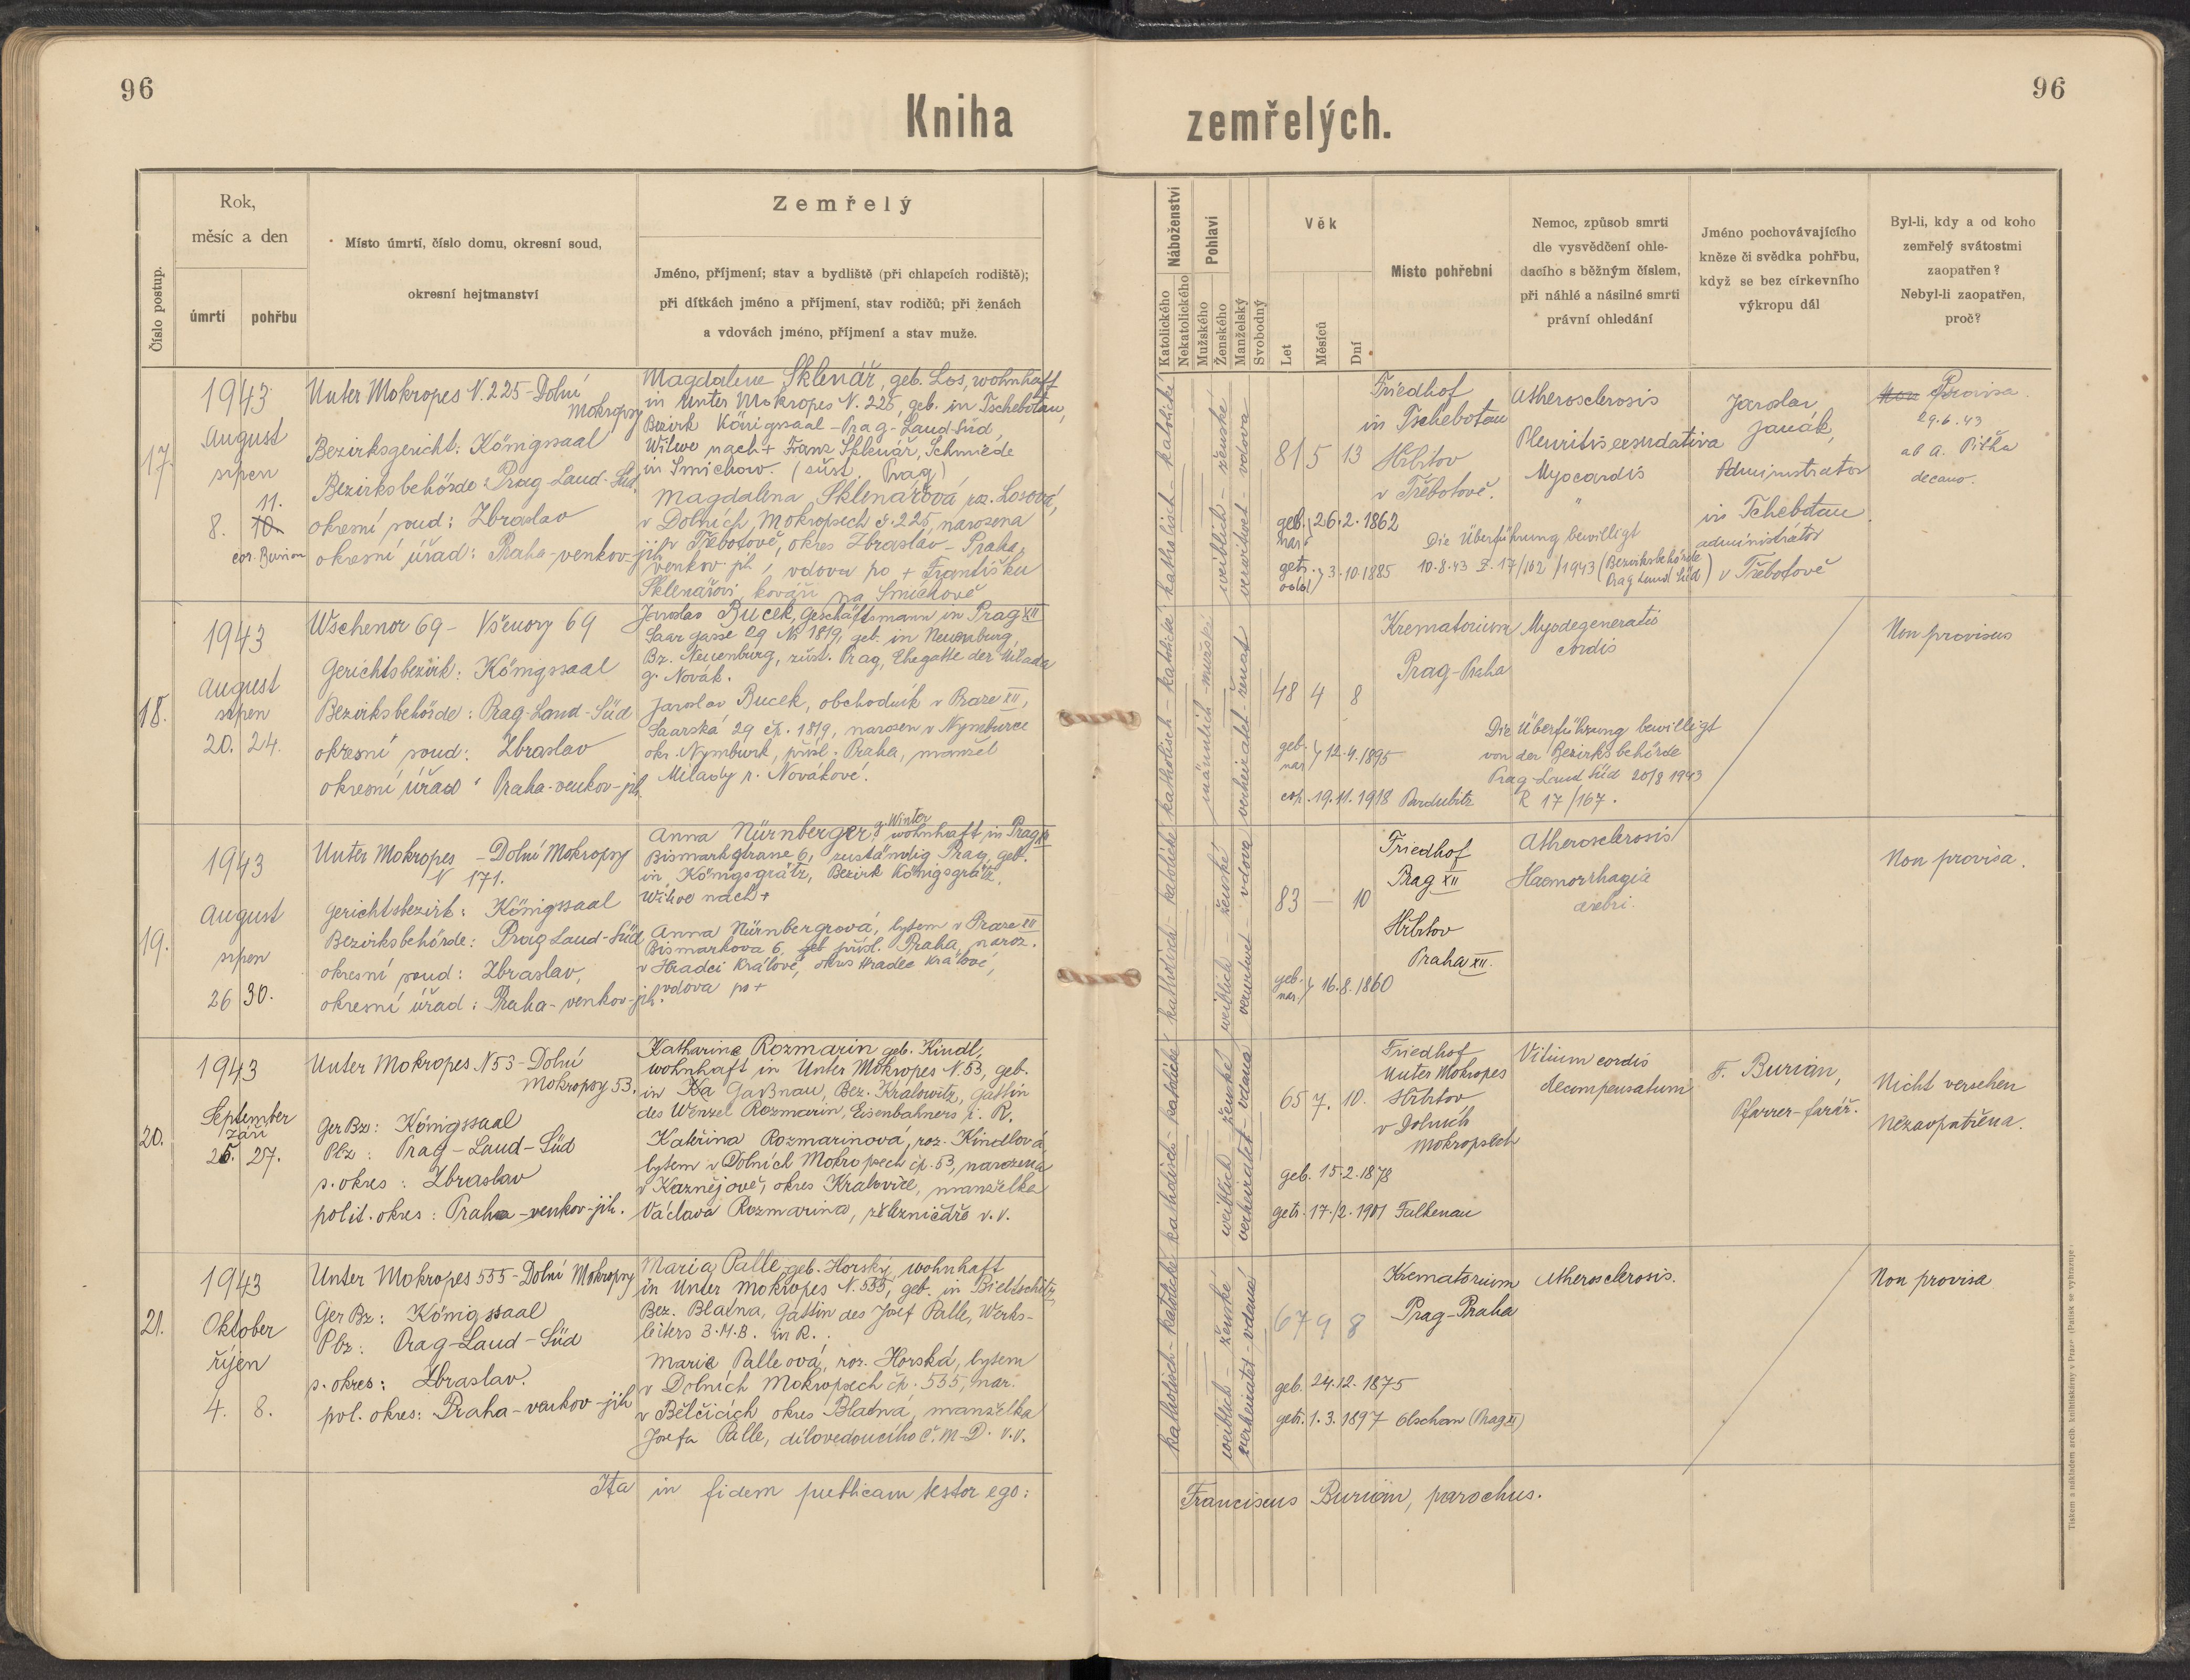 96
96
Kniha
zemřelých.
Číslo postup.
Rok,
měsíc a den
úmrtí
pohřbu
Místo úmrtí, číslo domu, okresní soud,
okresní hejtmanství
Zemřelý
Jméno, příjmení; stav a bydliště (při chlapcích rodiště);
při dítkách jméno a příjmení, stav rodičů; při ženách
a vdovách jméno, příjmení a stav muže.
Náboženství
Katolického
Nekatolického
Pohlaví
Mužského
Ženského
Manželský
Svobodný
Věk
Let
Měsíců
Dní
Místo pohřební
Nemoc, způsob smrti
dle vysvědčení ohle-
dacího s běžným číslem,
při náhlé a násilné smrti
právní ohledání
Jméno pochovávajícího
kněze či svědka pohřbu,
když se bez církevního
výkropu dál
Byl-li, kdy a od koho
zemřelý svátostmi
zaopatřen?
Nebyl-li zaopatřen,
proč?
17.
1943
August
srpen
11.
8. 10.
cor. Burian
Unter Mokropes N. 225 - Dolní
Mokropsy
Bezirksgericht: Königsaal
Bezirksbehörde: Prag-Land-Süd
okresní soud: Zbraslav
okresní úřad: Praha-venkov-jih
Magdalene Sklenář, geb. Los, wohnhaft
in Unter Mokropes N. 225, geb. in Tschebotau,
Bezirk Königsaal - Prag-Land-Süd,
Witwe nach + Franz Sklenář, Schmiede
in Smichow. (zúst. Prag)
Magdalena Sklenářová roz. Losová,
v Dolních Mokropsech č. 225, narozena
v Třebotově, okres Zbraslav - Praha,
venkov jih, vdova po + Františku
Sklenářovi, kováři na Smíchově
katholisch - katolické
weiblich - ženské
verwitwet - vdova
81 5 13
geb. nar. 26.2.1862
getr. odd. 3.10.1885
Friedhof
in Tschebotau
Hřbitov
v Třebotově.
Atherosclerosis
Pleuritis exsudativa
Myocardis
Die Überführung bewilligt
10.8.43 Z. 17/162/1943 (Bezirksbehörde
Prag Land Süd)
Jaroslav
Janák,
Administrator
in Tschebotau
administrátor
v Třebotově
Non Provisa.
29.6.43
ab A. Pitha
decano.
18.
1943
August
srpen
20. 24.
Wschenor 69 - Všenory 69
Gerichtsbezirk: Königssaal
Bezirksbehörde: Prag-Land-Süd
okresní soud: Zbraslav
okresní úřad: Praha-venkov-jih.
Jaroslav Bucek, Geschäftsmann in Prag XII
Saar gasse 29 N. 1819, geb. in Neuenburg,
Bz. Neuenburg, zúst. Prag, Ehegatte der Milada
g. Novák.
Jaroslav Bucek, obchodník v Praze XII,
Saarská 29 čp. 1819, narozen v Nymburce
okr. Nymburk, přísl. Praha, manžel
Milady r. Novákové.
katholisch - katolické
männlich - mužské
verheiratet - ženat
48 4 8
geb. nar. 12.4.1895
cop. 19.11.1918 Pardubitz
Krematorium
Prag-Praha
Myodegeneratio
cordis
Die Überführung bewilligt
von der Bezirksbehörde
Prag-Land Süd 20/8 1943
R 17/167.
Non provisus
19.
1943
August
srpen
26 30.
Unter Mokropes - Dolní Mokropsy
N 171.
Gerichtsbezirk: Königssaal
Bezirksbehörde: Prag Land-Süd
okresní soud: Zbraslav,
okresní úřad: Praha-venkov-jih.
Anna Nürnberger g. Winter wohnhaft in Prag XII
Bismarkstrasse 6, zuständig Prag, geb.
in Königsgrätz, Bezirk Königsgrätz,
Witwe nach +
Anna Nürnbergrová, bytem v Praze XII
Bismarkova 6, geb přísl. Praha, naroz.
v Hradci Králové, okres Hradec Králové,
vdova po +
katholisch - katolické
weiblich - ženské
verwitwet - vdova
83 - 10
geb. nar. 16.8.1860
Friedhof
Prag XII
Hřbitov
Praha XII.
Atherosclerosis
Haemorrhagia
cerebri.
Non provisa.
20.
1943
September
Září
25. 27.
Unter Mokropes N 53 - Dolní
Mokropsy 53.
Ger Bz: Königssaal
Pbz: Prag-Land-Süd
s. okres: Zbraslav
polit. okres: Praha-venkov-jih.
Katharina Rozmarin geb. Kindl,
wohnhaft in Unter Mokropes N. 53, geb.
in Ka Gaßnau, Bez. Kralowitz, Gattin
des Wenzel Rozmarin, Eisenbahners i. R.
Kateřina Rozmarinová, roz. Kindlová
bytem v Dolních Mokropsech čp. 53, narozena
v Kaznějově, okres Kralovice, manželka
Václava Rozmarina, železničáře v. v.
katholisch - katolické
weiblich - ženské
verheiratet - vdaná
65 7. 10.
geb. 15.2.1878
getr. 17./2.1901 Falkenau
Friedhof
Unter Mokropes
Hřbitov
v Dolních
Mokropsech
Vitium cordis
decompensatum
F. Burian,
Pfarrer-farář.
Nicht versehen
Nezaopatřena.
21.
1943
Oktober
říjen
4. 8.
Unter Mokropes 535 - Dolní Mokropsy
Ger Bz: Königssaal
Pbz: Prag-Land-Süd
s. okres: Zbraslav.
pol. okres: Praha-venkov-jih
Maria Palle, geb. Horský, wohnhaft
in Unter Mokropes N. 535, geb. in Bieltschitz,
Bez. Blatna, Gattin des Josef Palle, Werks-
leiters B.M.B. in R.
Marie Palleová, roz. Horská, bytem
v Dolních Mokropsech čp. 535, nar.
v Bělčicích okres Blatná, manželka
Josefa Palle, dílovedoucího Č.M.D. v.v.
katholisch - katolické
weiblich - ženské
verheiratet - vdaná
67 9 8
geb. 24.12.1875
getr. 1.3.1897 Olschan (Prag XI)
Krematorium
Prag-Praha
Atherosclerosis.
Non provisa
Ita in fidem publicam testor ego:
Franciscus Burian, parochus.
Tiskem a nákladem arcib. knihtiskárny v Praze. (Patisk se vyhrazuje.)